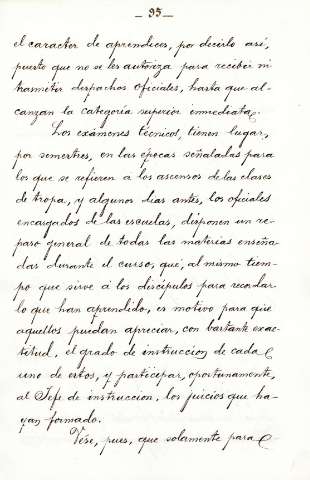 - 95 -
el caracter de aprendices, por decirlo así,
puesto que no se les autoriza para recibir ni
trasmitir despachos oficiales, hasta que al-
canzan la categoría superior inmediata.
Los exámenes técnicos, tienen lugar,
por semestres, en las épocas señaladas para
los que se refieren a los ascensos de las clases
de tropa, y algunos dias antes, los oficiales
encargados de las escuelas, disponen un re-
paso general de todas las materias enseña-
das durante el curso, que, al mismo tiem-
po que sirve á los discípulos para recordar
lo que han aprendido, es motivo para que
aquellos puedan apreciar, con bastante exac-
titud, el grado de instruccion de cada
uno de estos, y participar, oportunamente,
al Jefe de instruccion, los juicios que ha-
yan formado.
Vése, pues, que solamente para